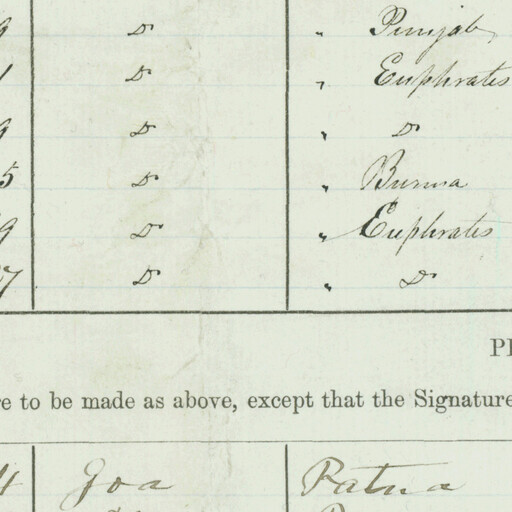 9 Do " Punjab,
1 Do " Euphrates
9 Do " Do
5 Do " Burma
9 Do " Euphrates
7 Do " Do
PI
re to be made as above, except that the Signature
4 Goa Patna